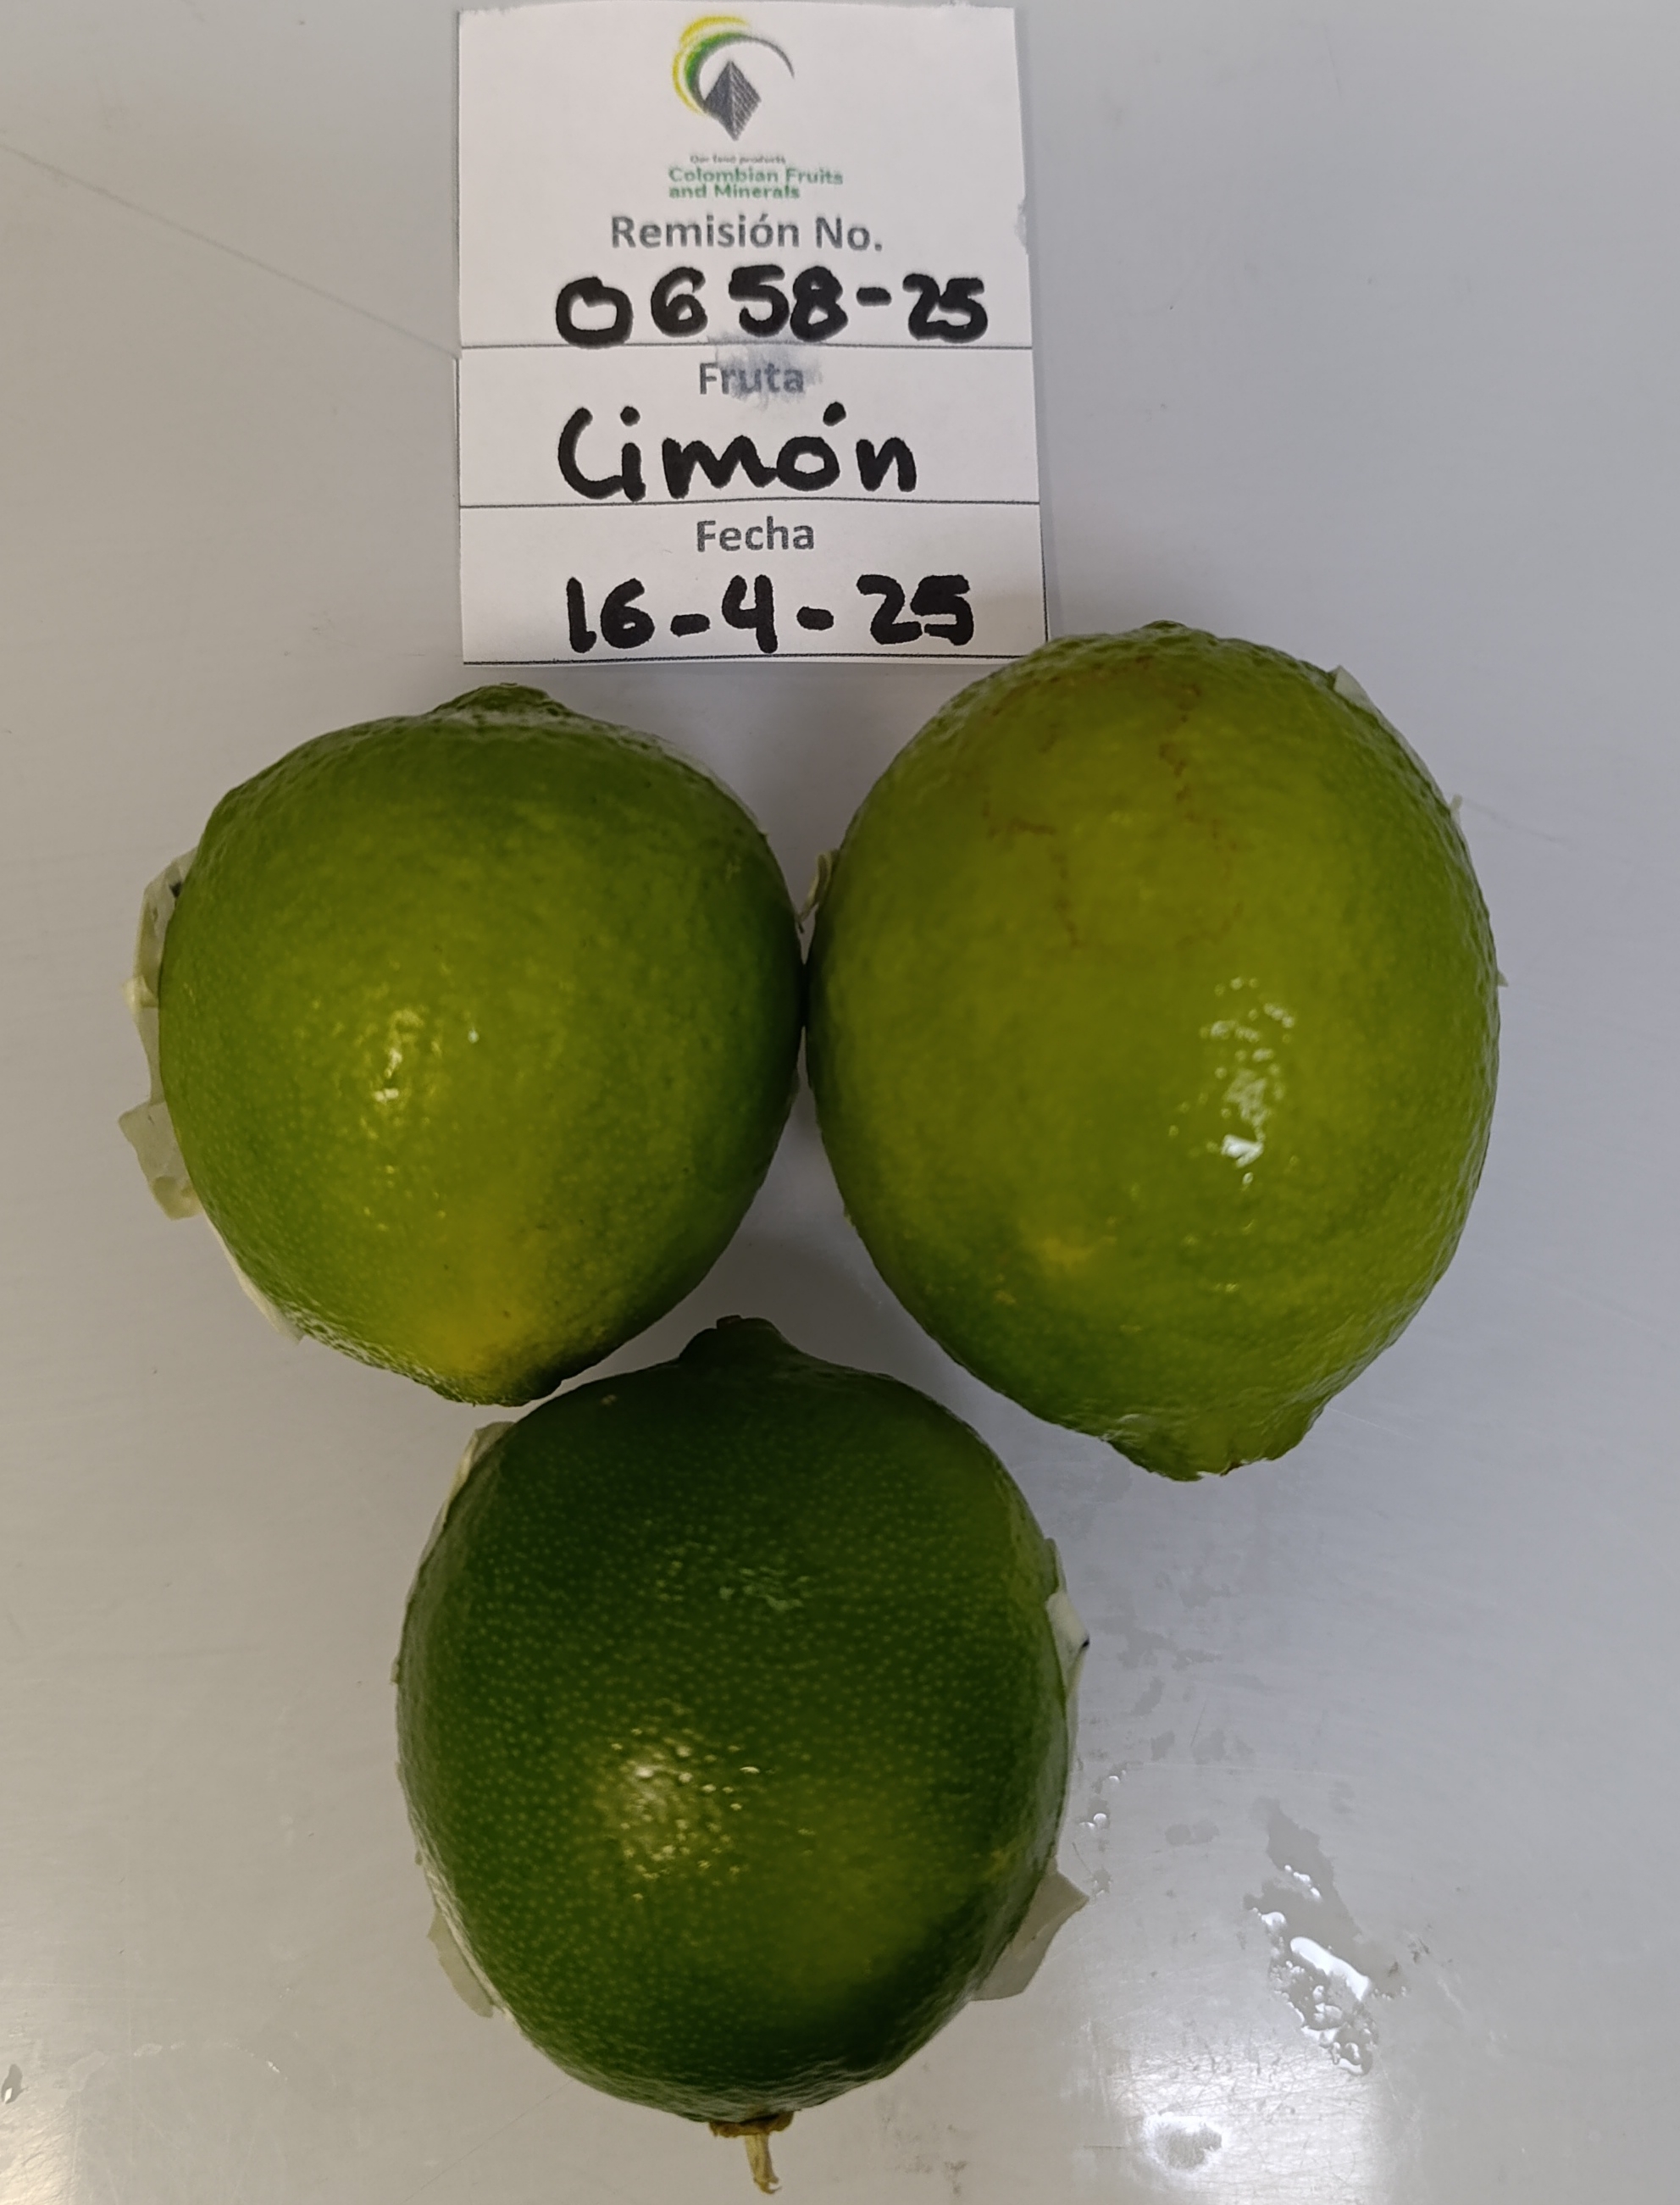 Our food products
Colombian Fruits
and Minerals
Remisión No.
0658-25
Fruta
Limón
Fecha
16-4-25